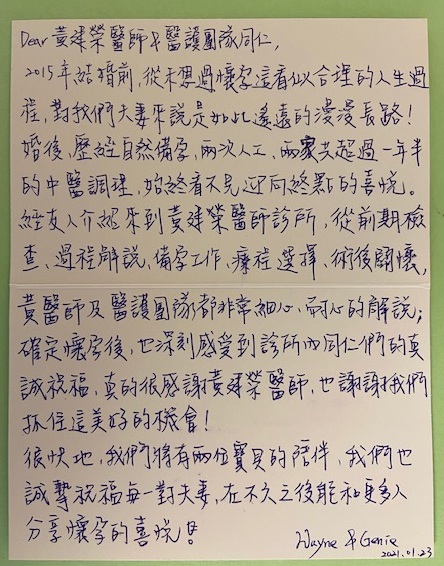 Dear 黃建榮醫師及醫護團隊同仁,
2015年結婚前,從未想過懷孕這看似合理的人生過
程,對我們夫妻來說是如此遙遠的漫漫長路!
婚後,歷經自然備孕、兩次人工、兩人超過一年半
的中醫調理,始終看不見迎向終點的喜悅。
經友人介紹來到黃建榮醫師診所,從前期檢
查、過程解說、備孕工作、療程選擇、術後關懷,
黃醫師及醫護團隊都非常細心、耐心的解說;
確定懷孕後,也深刻感受到診所內同仁們的真
誠祝福,真的很感謝黃建榮醫師,也謝謝我們
抓住這美好的機會!
很快地,我們將有兩位寶貝的陪伴,我們也
誠摯祝福每一對夫妻,在不久之後能和更多人
分享懷孕的喜悅
Wayne & Genie
2021.01.23